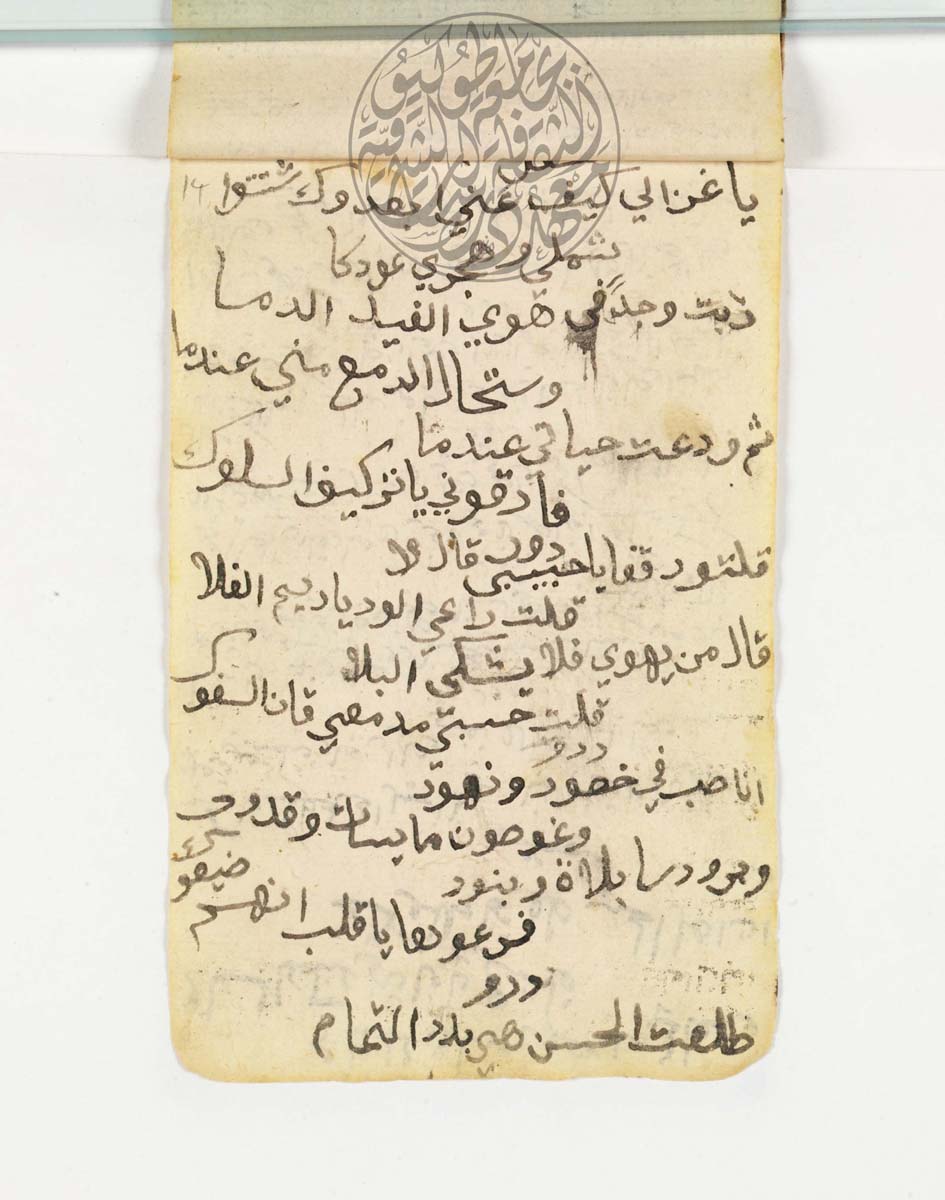 يا غزالي كيف عني ابعدوك شتتوا
شملي وهجري عودكا
ذبت وجداً في هوي الغيد الدما
وستحال الدمع مني عندما
ثم ودعت حياتي عندما
فارقوني يا تركيف السلوك
دور
قلتو رفقا يا حبيبي قال لا
قلت راعي الود يا ريم الفلا
قال من يهوي فلا يشكي البلا
قلت حسبي مدمعي قان السفوك
دور
انا صب في خصور ونهود
وغوصون مايسات وقدود
وبرود سابلاة وبنود
فرعوها يا قلب انهم ضيعوك
دور
طلعت الحسن هي بدر التمام